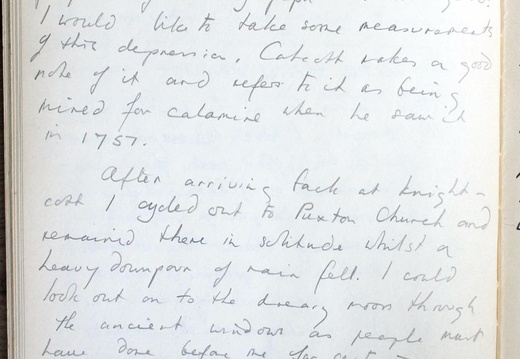 I would like to take some measurements
of this depression. Catcott makes a good
note of it and refers to it as being
mined for calamine when he saw it
in 1757.
After arriving back at Knight-
cott I cycled out to Puxton Church and
remained there in solitude whilst a
heavy downpour of rain fell. I could
look out on to the dreary moor through
the ancient windows as people must
have done before me for